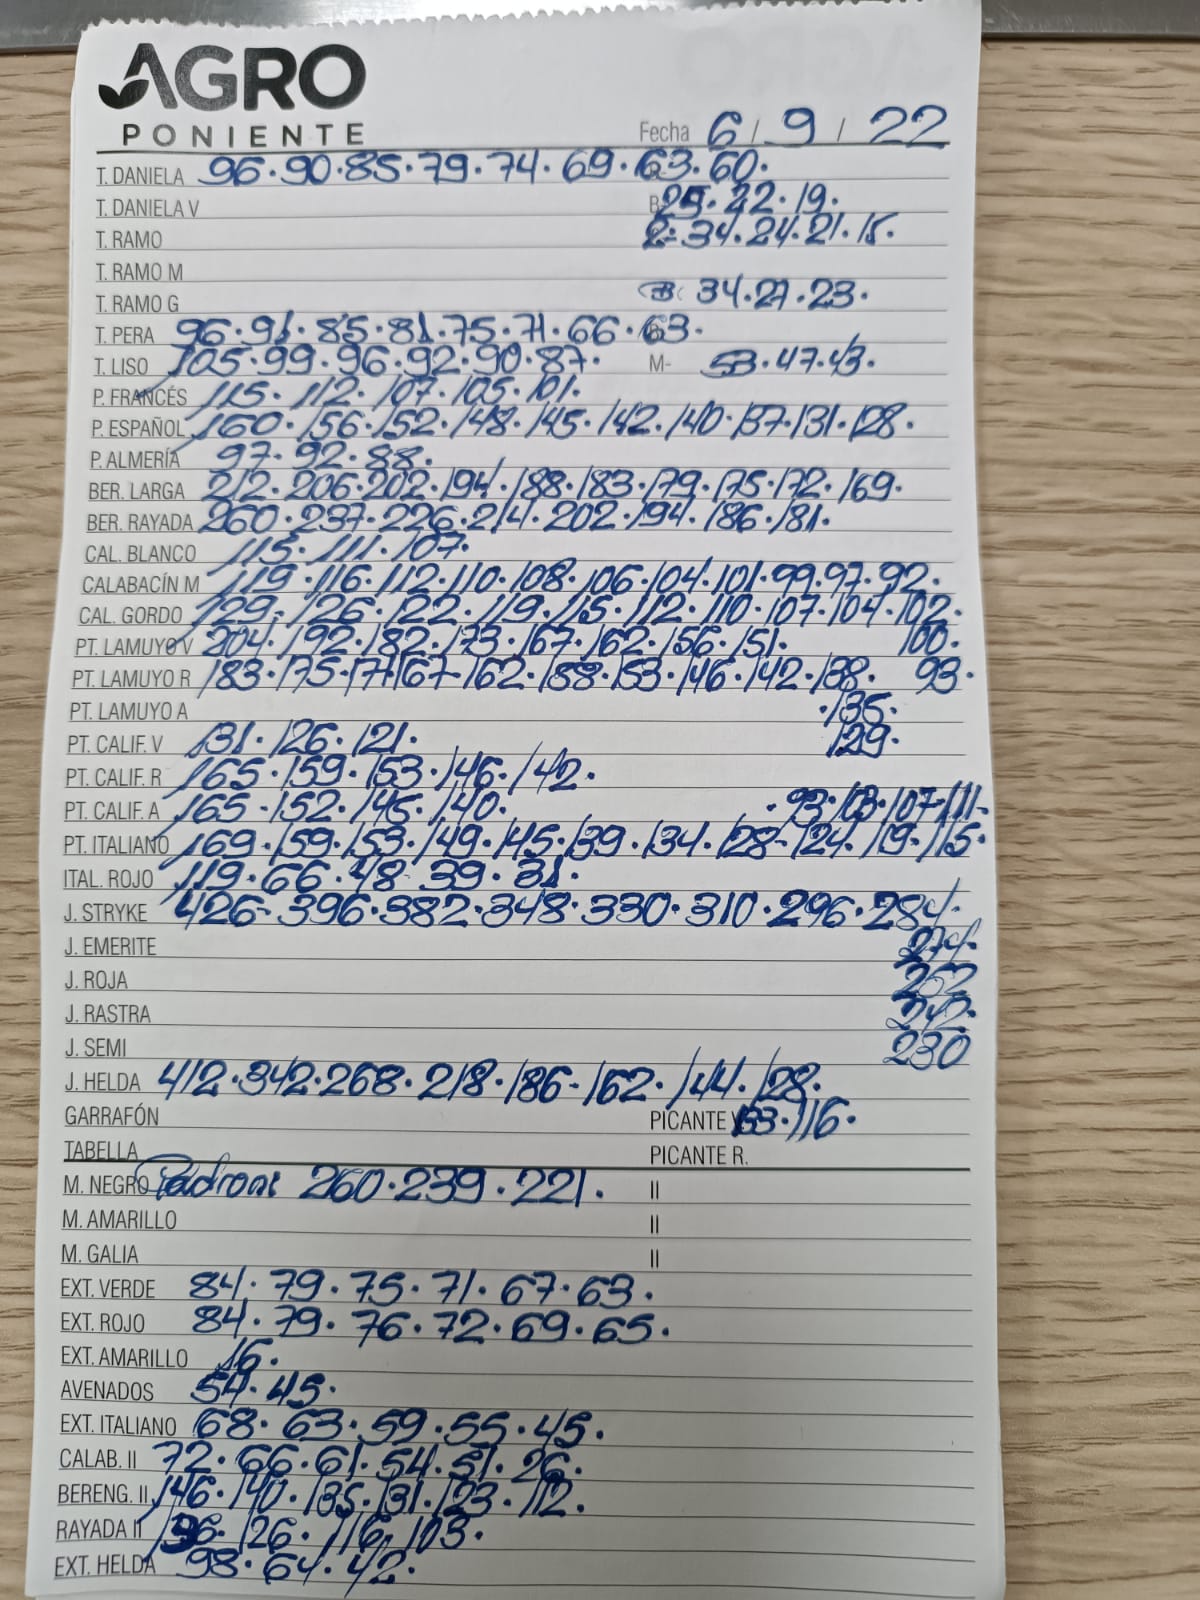 AGRO
PONIENTE
Fecha 6 / 9 / 22
T. DANIELA 96·90·85·79·74·69·63·60·
T. DANIELA V B 25·22·19·
T. RAMO 2=34·24·21·15·
T. RAMO M
T. RAMO G 34·27·23·
T. PERA 96·91·85·81·75·71·66·63·
T. LISO 105·99·96·92·90·87· M- 53·47·43·
P. FRANCÉS 115·112·107·105·101·
P. ESPAÑOL 160·156·152·148·145·142·140·137·131·128·
P. ALMERÍA 97·92·88·
BER. LARGA 212·206·202·194·188·183·179·175·172·169·
BER. RAYADA 260·237·226·214·202·194·186·181·
CAL. BLANCO 115·111·107·
CALABACÍN M 119·116·112·110·108·106·104·101·99·97·92·
CAL. GORDO 129·126·122·119·115·112·110·107·104·102·
PT. LAMUYO V 204·192·182·173·167·162·156·151· 100·
PT. LAMUYO R 183·175·171·167·162·158·153·146·142·138· 93·
PT. LAMUYO A ·135·
PT. CALIF. V 131·126·121· 129·
PT. CALIF. R 165·159·153·146·142·
PT. CALIF. A 165·152·145·140· ·93·103·107·111·
PT. ITALIANO 169·159·153·149·145·139·134·128·124·119·115·
ITAL. ROJO 119·66·48·39·31·
J. STRYKE 426·396·382·348·330·310·296·284·
J. EMERITE 274·
J. ROJA 262
J. RASTRA 242·
J. SEMI 230
J. HELDA 412·342·268·218·186·162·144·128·
GARRAFÓN PICANTE V. 133·116·
TABELLA PICANTE R.
M. NEGRO Padrons 260·239·221· II
M. AMARILLO II
M. GALIA II
EXT. VERDE 84·79·75·71·67·63·
EXT. ROJO 84·79·76·72·69·65·
EXT. AMARILLO 16·
AVENADOS 54·45·
EXT. ITALIANO 68·63·59·55·45·
CALAB. II 72·66·61·54·51·26·
BERENG. II 146·140·135·131·123·112·
RAYADA II 136·126·116·103·
EXT. HELDA 98·64·42·